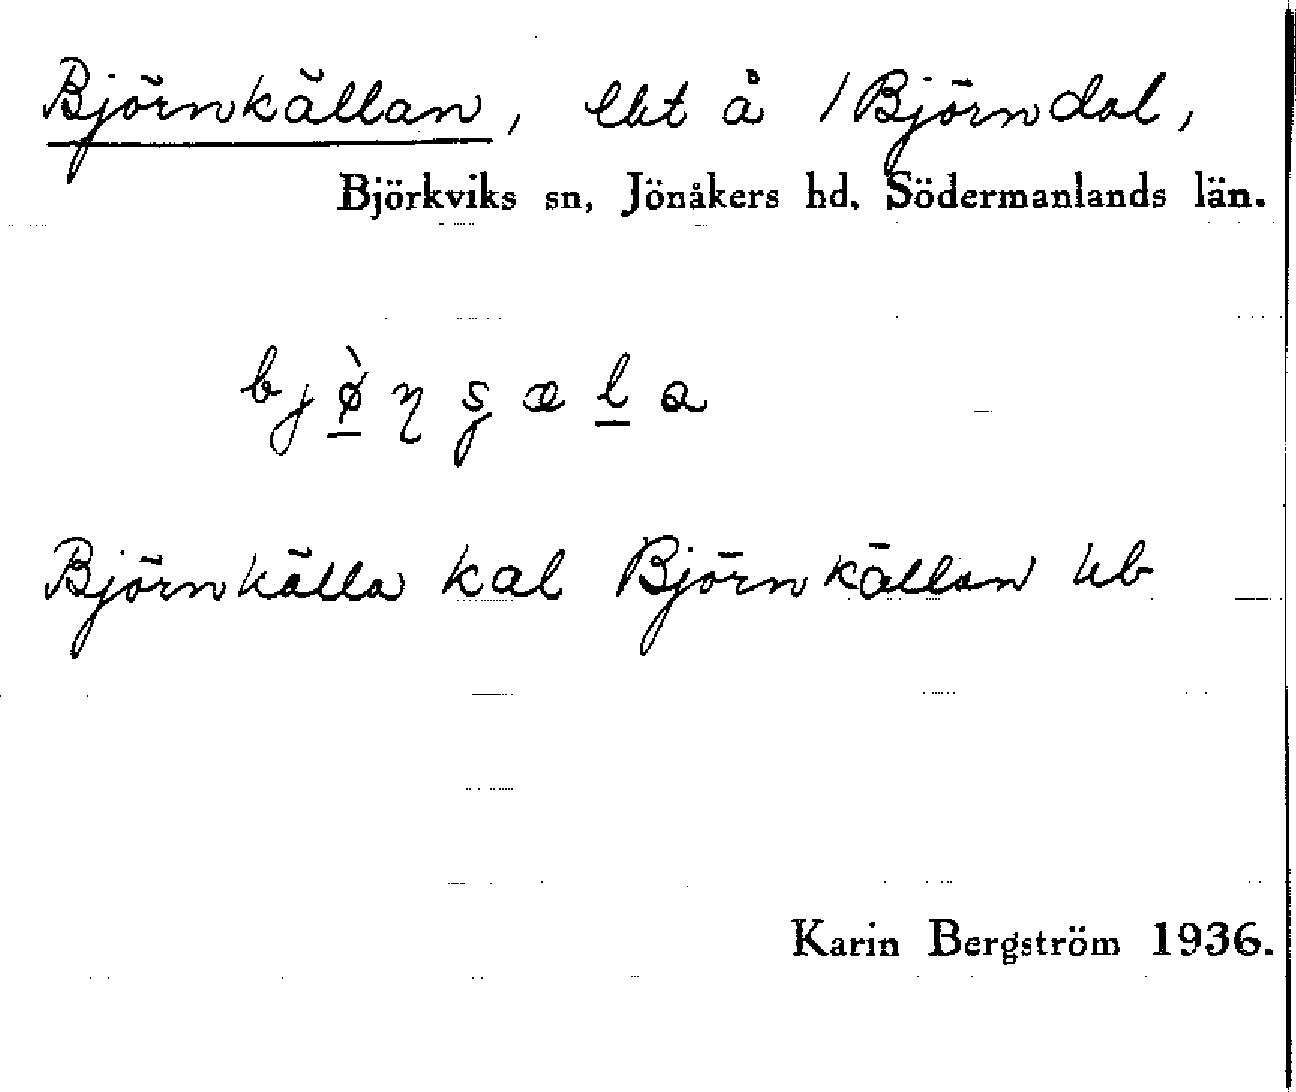 Björnkällan, lht å 1 Björndal,
Björkviks sn, Jönåkers hd. Södermanlands län.
Björnkälla kal Björnkällan hb
Karin Bergström 1936.